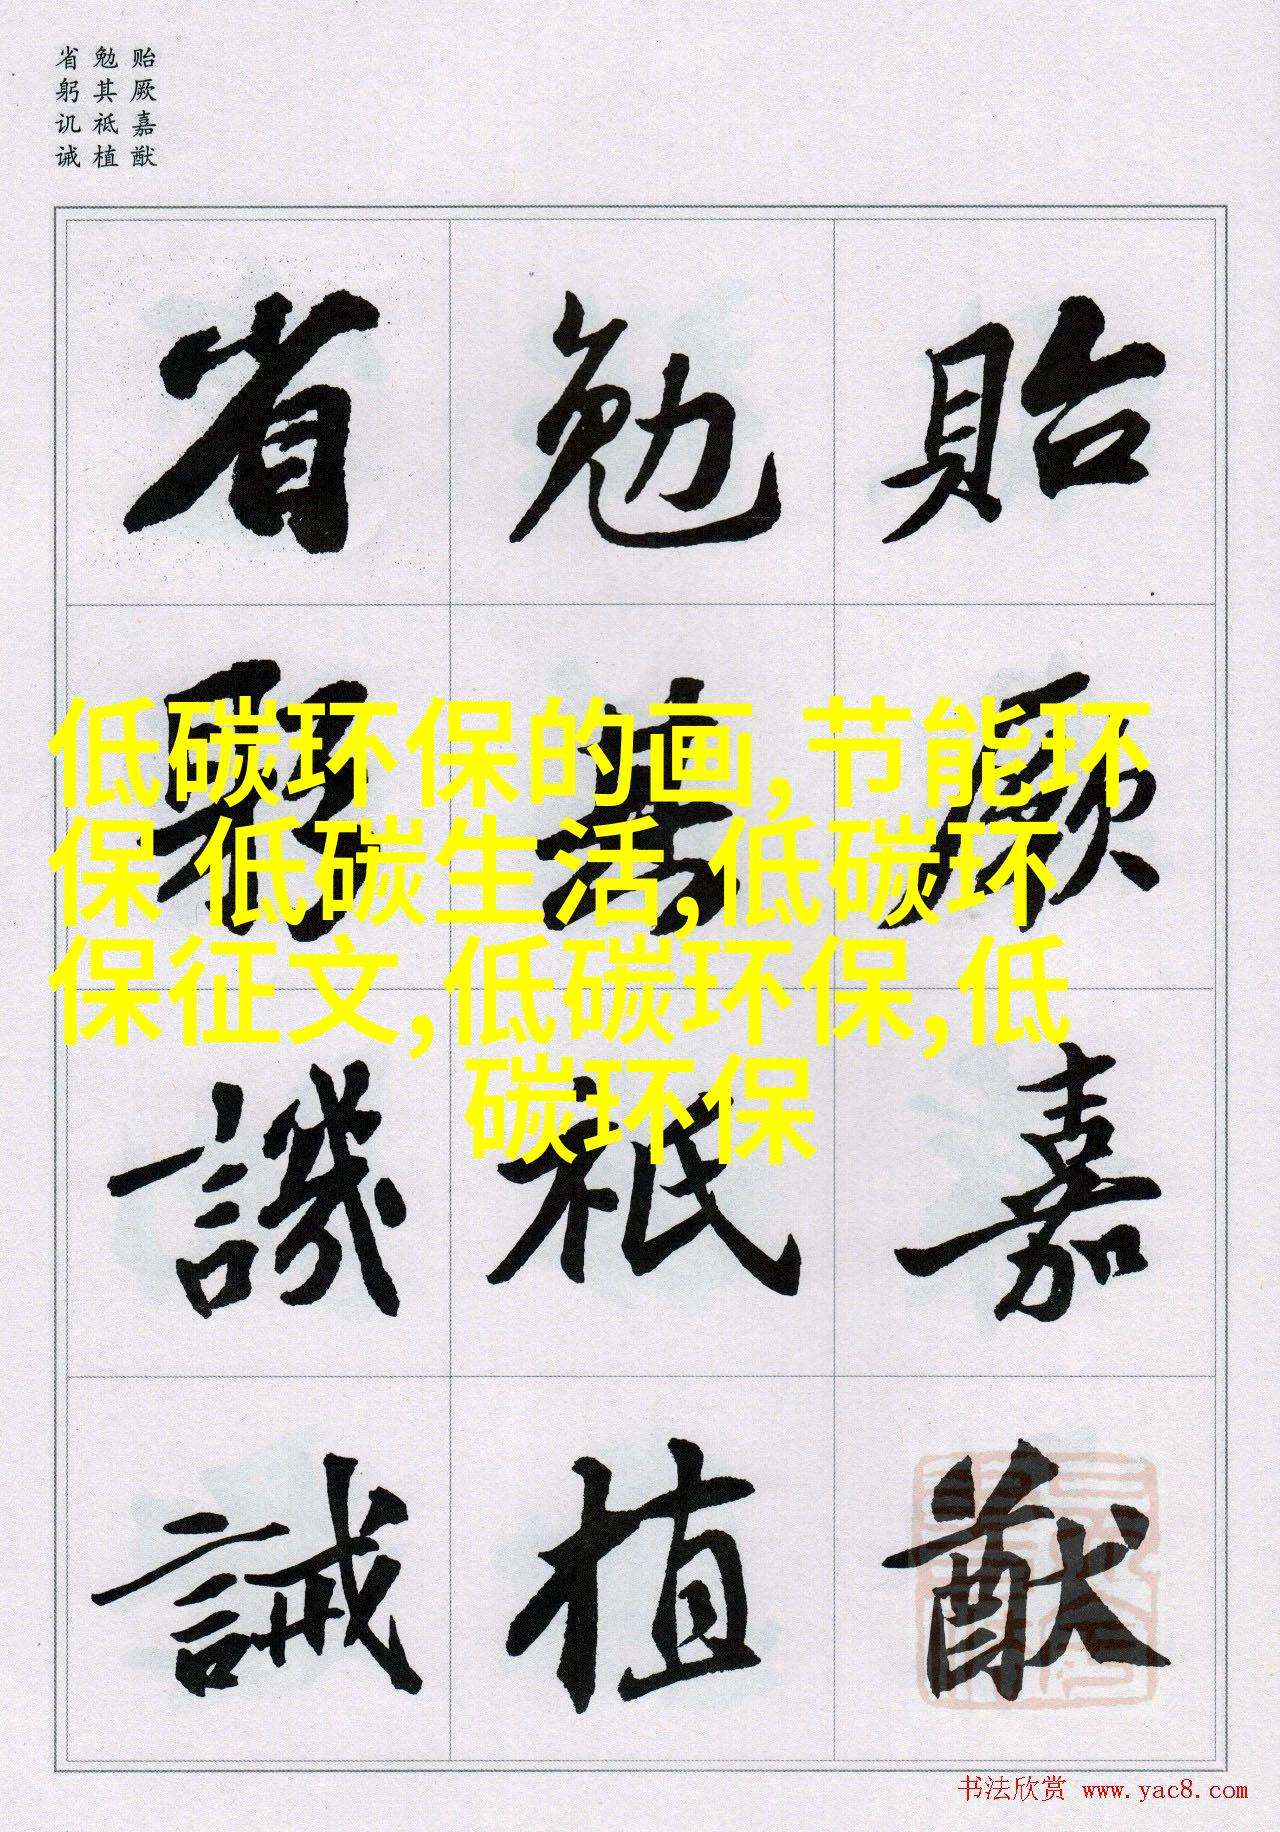 省 勉 贻
躬 其 厥
讥 祗 嘉
诫 植 猷
省 勉 貽
躬 其 厥
低碳环保的画,节能环
保 低碳生活,低碳环
保征文,低碳环保,低
碳环保
譏 祗 嘉
誡 植 猷
书法欣赏 www.yac8.com